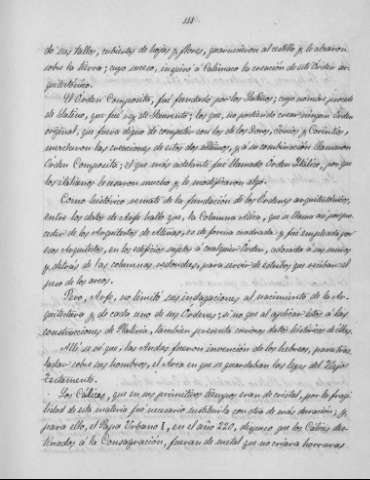 111
de sus tallos, cubiertas de hojas y flores, guarnecieron al cestillo y le alzaron
sobre la tierra; cuyo suceso, inspiró a Calímaco la creación de este Orden ar-
quitectónico.
El Orden Composita, fué fundado por los Latinos; cuyo nombre procede
de Latino, que fué rey de Laurento; los que, no pudiendo crear ningun Orden
original, que fuera digno de competir con los de los Dorios, Jonios y Corintios,
mezclaron las creaciones de estos dos últimos, y á su combinación llamaron
Orden Composita; el que más adelante fué llamado Orden Itálico, por que
los italianos le usaron mucho y le modificaron algo.
Como histórico remate de la fundación de los Órdenes arquitectónicos,
entre los datos de Arfe hallo que, la Columna Ática, que se llama así por pro-
ceder de los Arquitectos de Atenas, es de forma cuadrada y fué empleada por
sus Arquitectos, en los edificios sujetos á cualquier Orden, adosada á sus muros
y detrás de las columnas redondas, para servir de estribos que reciban el
peso de los arcos.
Pero, Arfe, no limitó sus indagaciones al nacimiento de la Ar-
quitectura y de cada uno de sus Órdenes; sino que al aplicar estos á las
construcciones de Platería, tambien presenta curiosos datos históricos de ellas.
Allí se vé que, las Andas fueron invención de los hebreos, para tras-
ladar sobre sus hombros, el Arca en que se guardaban las leyes del Viejo
Testamento.
Los Cálices, que en sus primitivos tiempos eran de cristal, por la fragi-
lidad de esta materia fué necesario sustituirla con otra de más duración; y
para ello, el Papa Urbano I, en el año 220, dispuso que los Cálices des-
tinados á la Consagración, fueran de metal que no criara horruras.